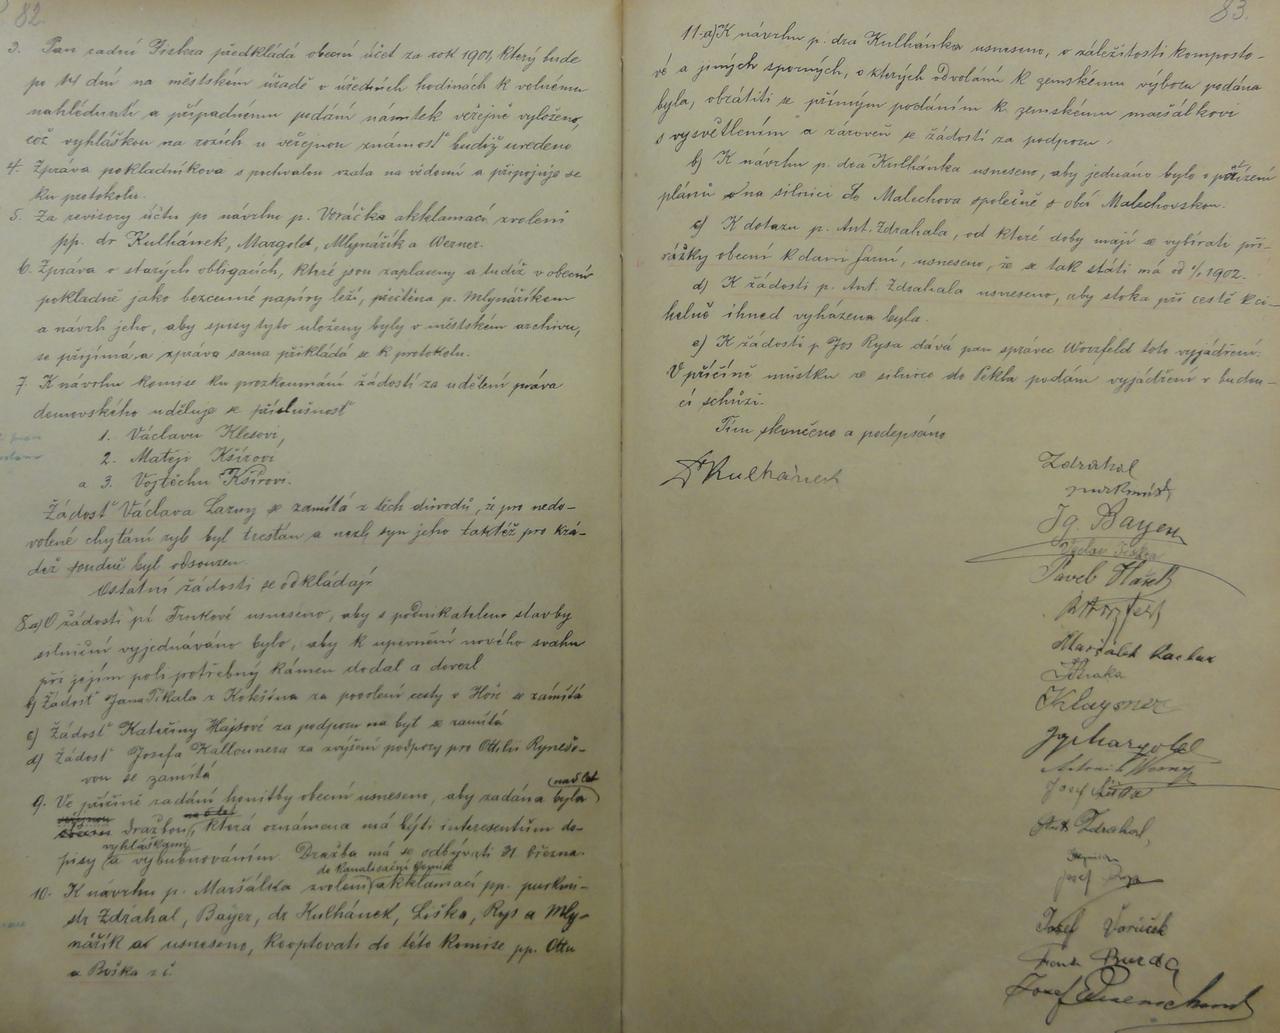 82.
3. Pan radní Fiskra předkládá obecní účet za rok 1901, který bude
po 14 dní na městském úřadě v úředních hodinách k volnému
nahlédnutí a případnému podání námitek veřejně vyložen,
což vyhláškou na rozích u veřejnou známost budiž uvedeno
4. Zpráva pokladníkova s pochvalou vzata na vědomí a připojuje se
ku protokolu.
5. Za revisory účtu po návrhu p. Voráčka akklamací zvoleni
pp. dr Kulhánek, Margold, Mlynářík a Werner.
6. Zpráva o starých obligacích, které jsou zaplaceny a tudíž v obecní
pokladně jako bezcenné papíry leží, přečtena p. Mlynáříkem
a návrh jeho, aby spisy tyto uloženy byly v městském archivu,
se přijímá, a zpráva sama přikládá se k protokolu.
7. K návrhu komise ku prozkoumání žádostí za udělení práva
domovského uděluje se příslušnosť
1. Václavu Klesovi,
2. Matěji Kšírovi
a 3. Vojtěchu Kšírovi.
Žádosť Václava Lazny se zamítá z těch důvodů, že pro nedo-
volené chytání ryb byl trestán a nezl. syn jeho taktéž pro krá-
dež odsouzen.
Ostatní žádosti se odkládají
8. a) O žádosti pí usneseno, aby s podnikatelem stavby
silniční vyjednáváno bylo, aby k upevnění nového svahu
při jejím poli potřebný kámen dodal a dovezl
b) Žádosť Jana Tikala z Kokšína za povolení cesty v Hoře se zamítá
c) Žádosť Kateřiny Hajsové za podporu na byt se zamítá
d) Žádosť Josefa Kallounera za zvýšení podpory pro Ottilii Rynešo-
vou se zamítá
9. Ve příčině zadání honitby obecní usneseno, aby zadána byla
na 6 let
dražbou, která oznámena má býti interesentům do-
vyhláškami
pisy a vybubnováním. Dražba má se odbývati 31 března.
do kanalisační komise
10. K návrhu p. Maršálka zvoleni akklamací pp. purkmi-
str Zdrahal, Bayer, dr Kulhánek, Liška, Rys a Mly-
nářík a usneseno, kooptovati do této komise pp. Ottu
a Boška z č.
83.
11. a) K návrhu p. dra Kulhánka usneseno, v záležitosti komposto-
vé a jiných sporných, o kterých odvolání k zemskému výboru podána
byla, obrátiti se přímým podáním k zemskému maršálkovi
s vysvětlením a zároveň se žádostí za podporu.
b) K návrhu p. dra Kulhánka usneseno, aby jednáno bylo o pořízení
plánů na silnici do Malechova společně s obcí Malechovskou.
c) K dotazu p. Ant. Zdrahala, od které doby mají se vybírati při-
rážky obecní k dani farní, usneseno, že se tak státi má od 1/1 1902.
d) K žádosti p. Ant. Zdrahala usneseno, aby stoka při cestě k ci-
helně ihned vyházena byla.
e) K žádosti p. Jos Rysa dává pan správec Worzfeld toto vyjádření:
V příčině můstku ze silnice do Pekla podám vyjádření v budou-
cí schůzi.
Tím skončeno a podepsáno
Dr Kulhánek
Zdrahal
purkmistr
Ig. Bayer
Václav Fiskra
Pavel
Worzfeld
Maršálek Václav
Straka
Klaysner
Ig Margold
Antonín Werner
Josef Liška
Ant. Zdrahal,
Josef Rys
Josef Voráček
Frant. Burda
Josef